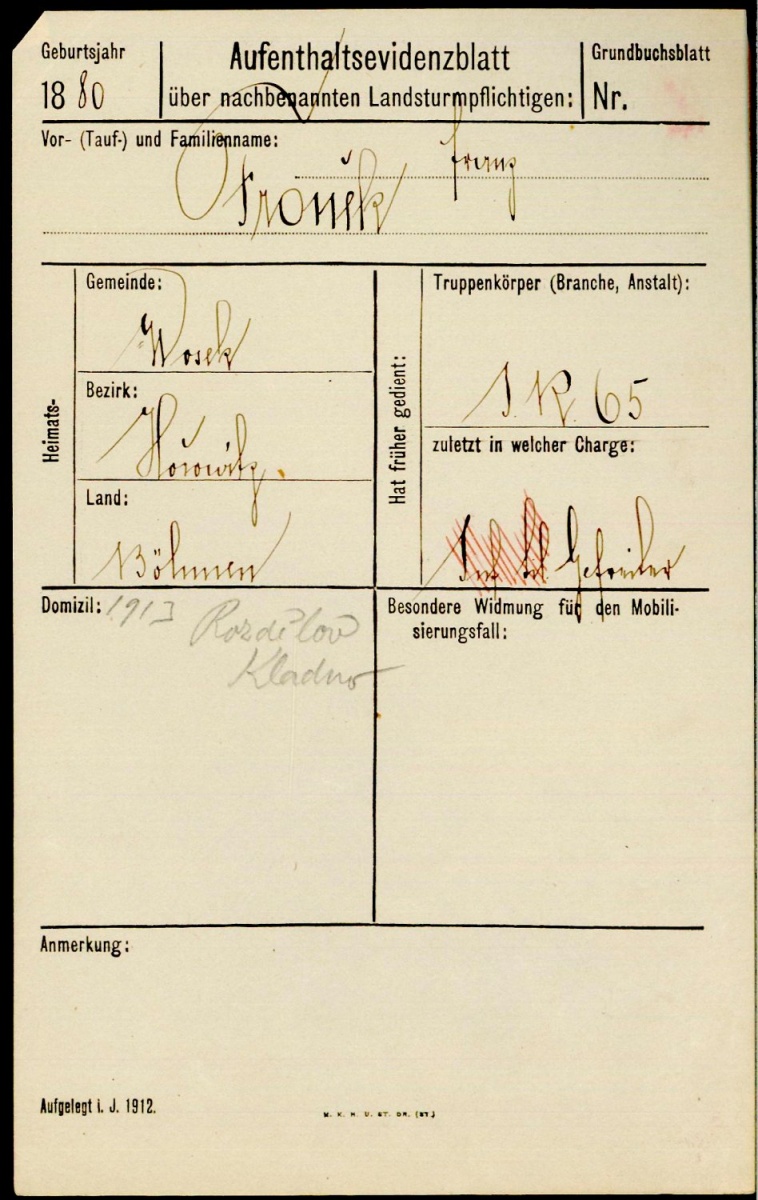 Geburtsjahr
1880
Aufenthaltsevidenzblatt
über nachbenannten Landsturmpflichtigen:
Grundbuchsblatt
Nr.
Vor- (Tauf-) und Familienname:
Franz
Heimats-
Gemeinde:
Wosek
Bezirk:
Hořowitz
Land:
Böhmen
Hat früher gedient:
Truppenkörper (Branche, Anstalt):
I. R. 65
zuletzt in welcher Charge:
Gefreiter
Domizil: 1913
Rozdělov
Kladno
Besondere Widmung für den Mobili-
sierungsfall:
Anmerkung:
Aufgelegt i. J. 1912.